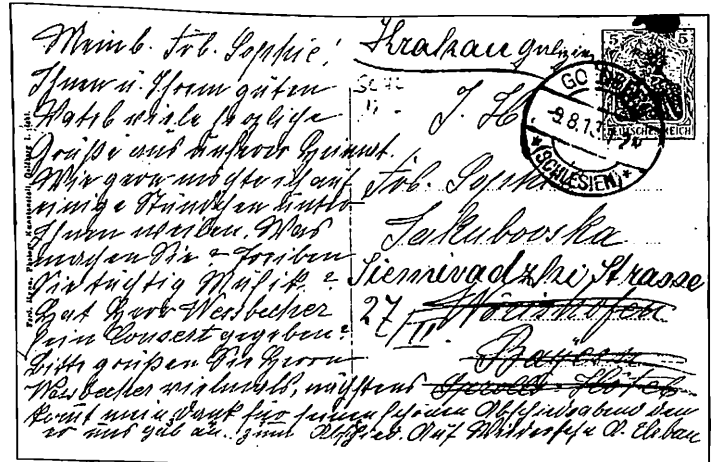 Mein l. Frl. Sophie!
Ihnen u. Ihrem guten
Vater viele herzliche
Grüße aus unserer Heimat.
Wie gern möchte ich auf
einige Stündchen unter
Ihnen weilen. Was
machen Sie? Treiben
Sie tüchtig Musik?
Hat Herr Werbecher
sein Concert gegeben?
Bitte grüßen Sie Herrn
Werbecher vielmals, nächstens
komt mein Dank für seinen schönen Abschiedsabend den
er uns gab an. zum Abschied. Auf Wiedersehn A. Elsbau
Krakau galizien
5 5
DEUTSCHES REICH
GO
9.8.1
*(SCHLESIEN)*
J. H.
Frl. Sophie
Jakubowska
Siemiradzki Strasse
27/II.
Wörishofen
Bayern
Hotel